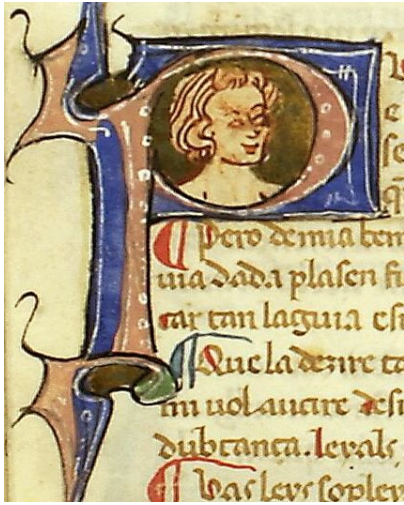 P
e
se
¶ Pero demia bem
uia dada plasen fi
tar tan laguia esi
¶ Que la dezire ta
mi uol aucire desi
dubtanca. leyals
¶ Das leys sopley